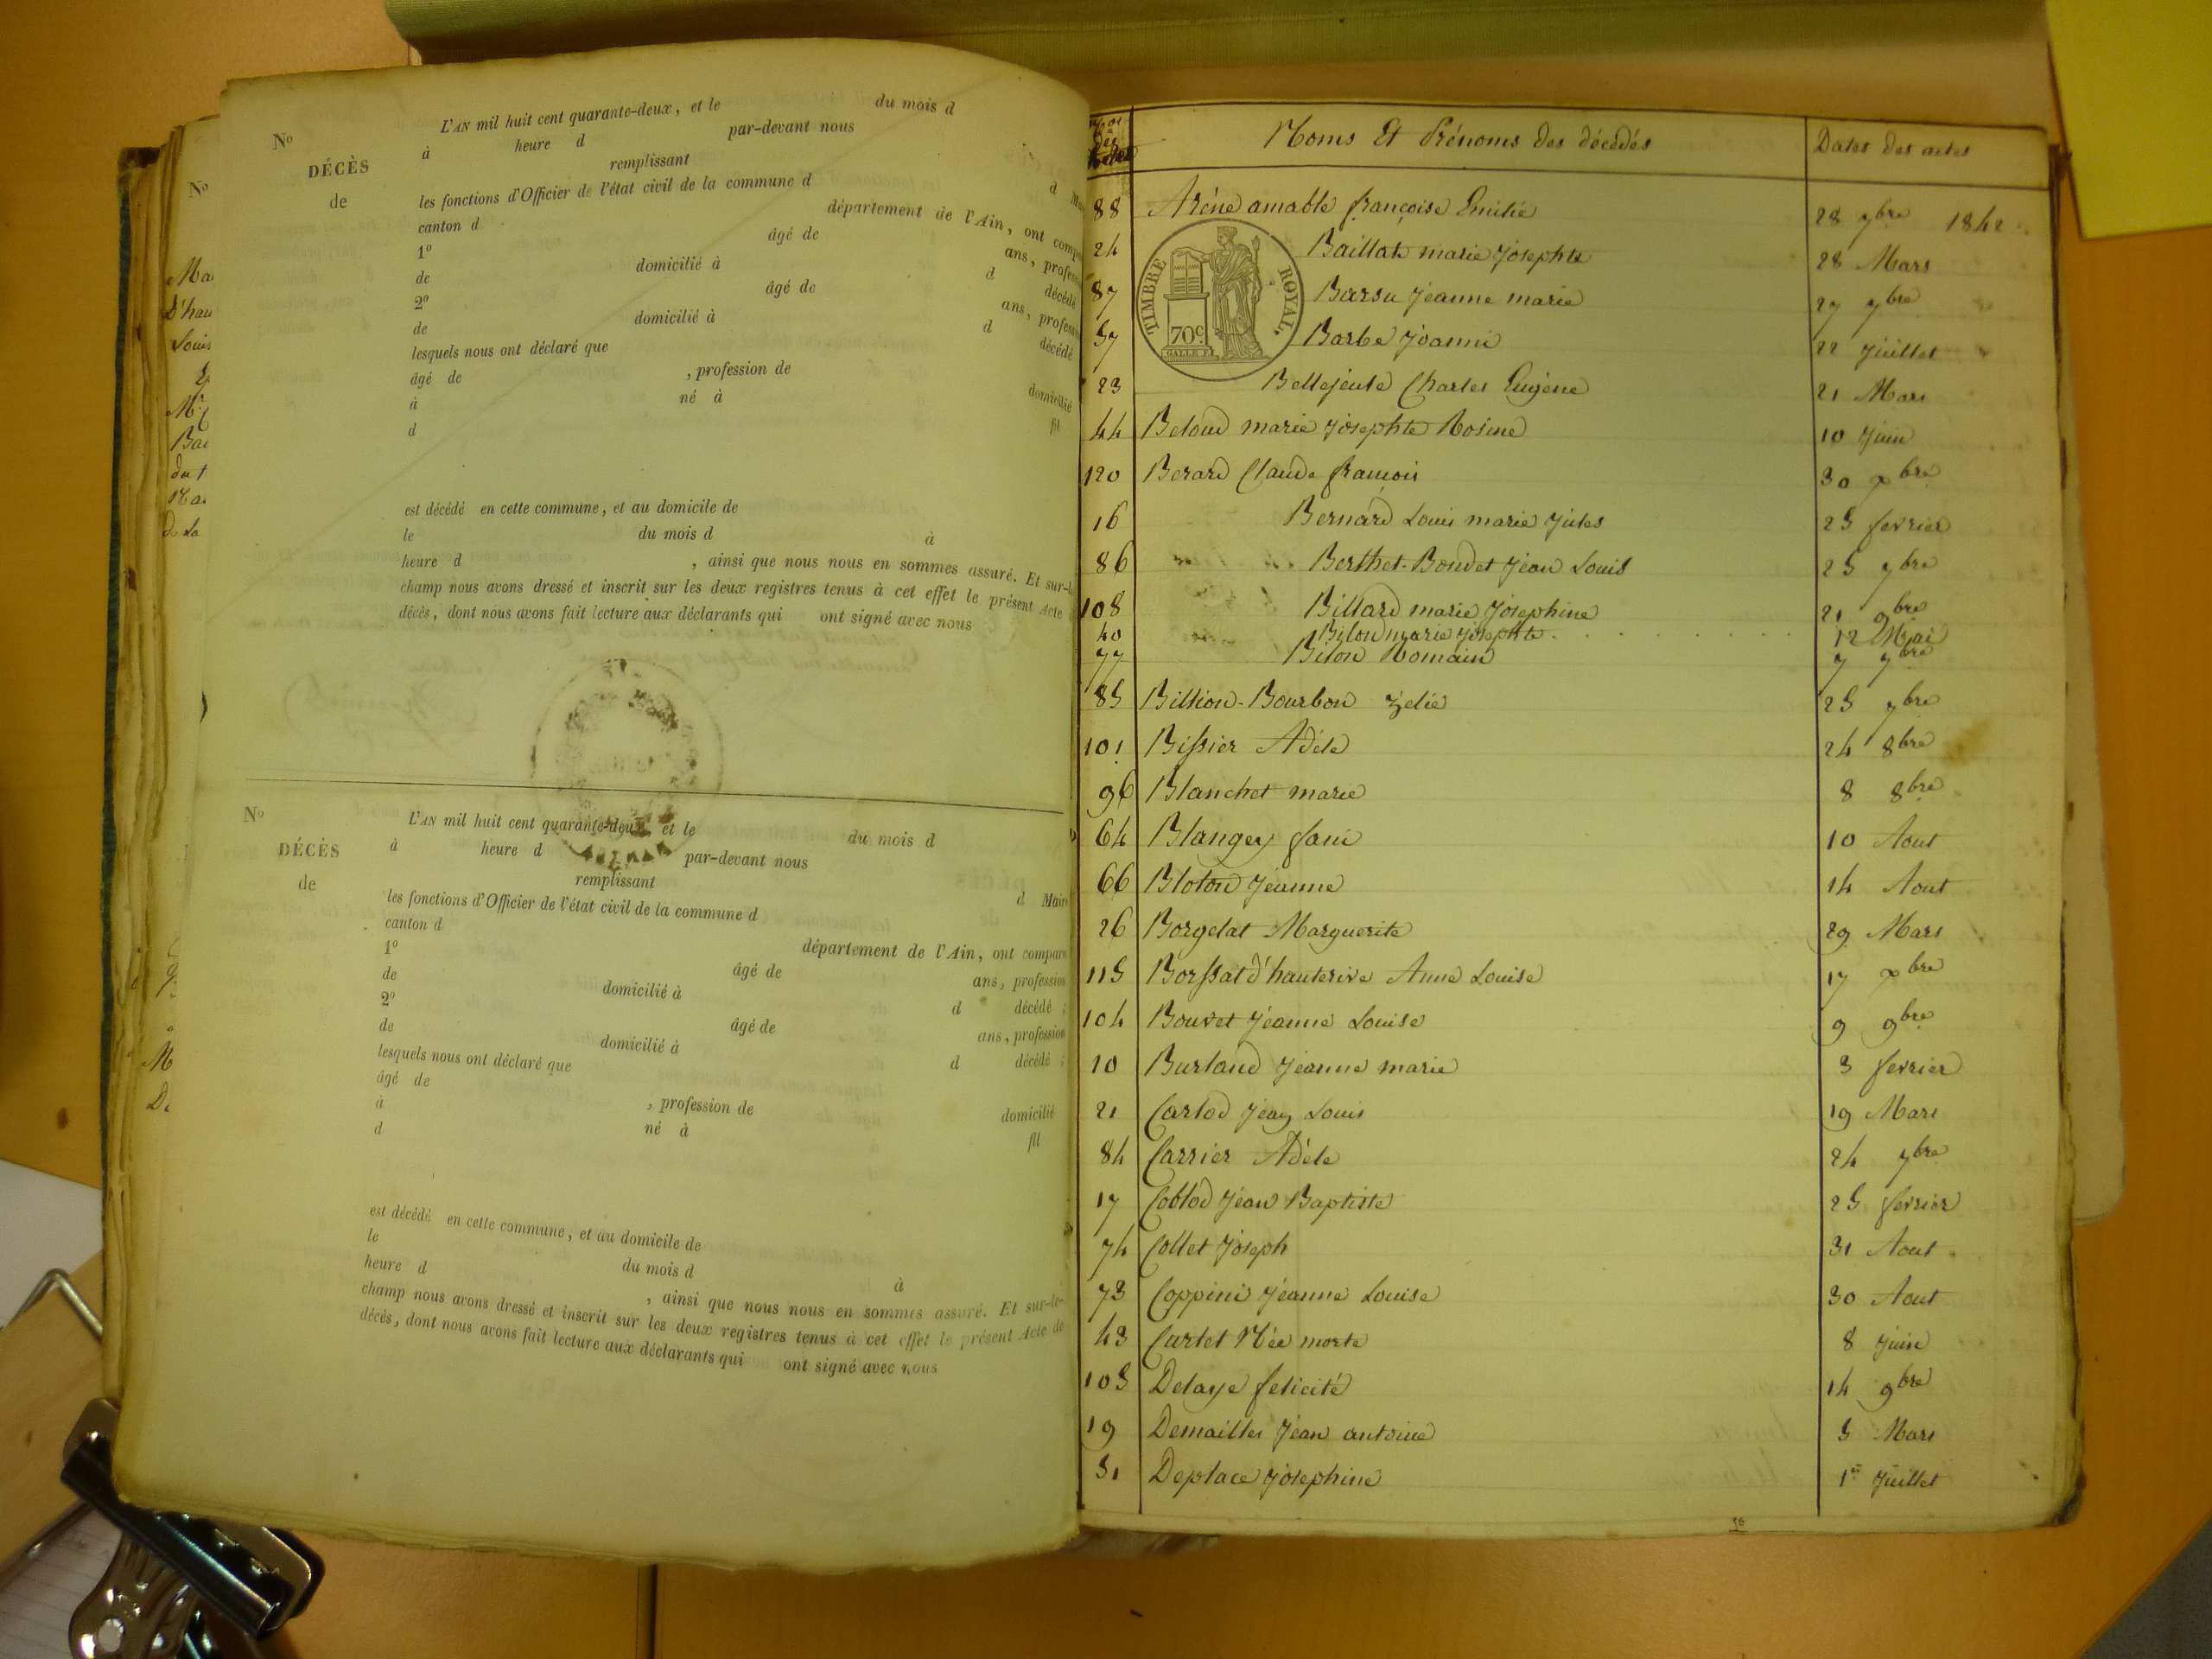 No
L'AN mil huit cent quarante-deux, et le du mois d
à heure d par-devant nous
DÉCÈS
remplissant
de
les fonctions d'Officier de l'état civil de la commune d d
canton d département de l'Ain, ont
1o âgé de ans,
de domicilié à d décédé
2o âgé de ans,
de domicilié à d décédé
lesquels nous ont déclaré que
âgé de , profession de domicilié
à né à fil
d
est décédé en cette commune, et au domicile de
le du mois d à
heure d , ainsi que nous nous en sommes assuré. Et
champ nous avons dressé et inscrit sur les deux registres tenus à cet effet le présent Acte
décès, dont nous avons fait lecture aux déclarants qui ont signé avec nous
No
L'AN mil huit cent quarante-deux, et le du mois d
à heure d par-devant nous
DÉCÈS
remplissant
de
les fonctions d'Officier de l'état civil de la commune d d
canton d département de l'Ain, ont
1o âgé de ans, profession
de domicilié à d décédé ;
2o âgé de ans, profession
de domicilié à d décédé ;
lesquels nous ont déclaré que
âgé de , profession de domicilié
à né à fil
d
est décédé en cette commune, et au domicile de
le du mois d à
heure d , ainsi que nous nous en sommes assuré. Et sur-le-
champ nous avons dressé et inscrit sur les deux registres tenus à cet effet le présent Acte de
décès, dont nous avons fait lecture aux déclarants qui ont signé avec nous
No
Noms Et Prénoms des décédés Dates des actes
TIMBRE ROYAL.
70c
GALLE F.
88 Aréne amable françoise Emilie 28 7bre 1842
24 Baillat marie josephte 28 Mars
87 Barsu jeanne marie 27 7bre
57 Barbe joanni 22 juillet
23 Bellejeule Charles Eugène 21 Mars
44 Beloud marie josephte Rosine 10 juin
120 Berard Claude francois 30 xbre
16 Bernard Louis marie jules 25 fevrier
86 Berthet-Bondet jean Louis 25 7bre
108 Billard marie josephine 21 9bre
40 Bilon marie josephte 12 Mai
77 Bilon Romain 7 7bre
85 Billion-Bourbon Zelie 25 7bre
101 Bissier Adèle 24 8bre
96 Blanchet marie 8 8bre
64 Blanger fani 10 Aout
66 Bloton jeanne 14 Aout
26 Borgelat Marguerite 29 Mars
115 Borssat d'hauterive Anne Louise 17 xbre
104 Bouvet jeanne Louise 9 9bre
10 Burland jeanne marie 3 fevrier
21 Carlod jean Louis 19 Mars
84 Carrier Adèle 24 7bre
17 Coblod jean Baptiste 25 fevrier
74 Collet joseph 31 Aout
73 Coppini jeanne Louise 30 Aout
43 Curtet Née morte 8 juin
105 Delaye felicité 14 9bre
19 Demailles jean antoine 5 Mars
51 Deplace josephine 1er juillet